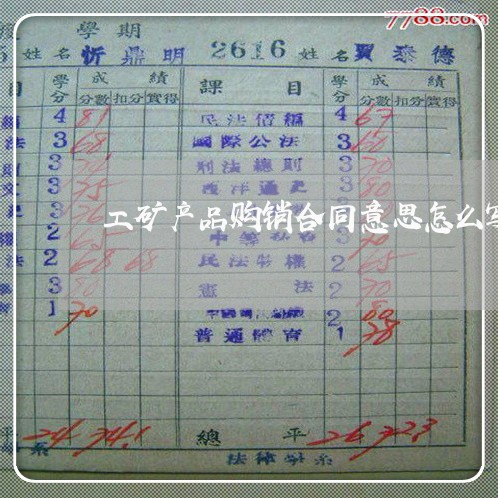 7788.com
學期
5 姓名 忻鼎明 2616 姓名 賈泰德
目 學分 成績 課目 學分 成績
分數 扣分 實得 分數 扣分 實得
4 81 民法債編 4 67
法 3 68 國際公法 3 60
3 刑法總則 3 70
3 75 西洋通史 3 80
工矿产品购销合同意思怎么写
2 65 3 70
法 2 68 68 民法物權 2 65
3 80 憲法 2 70
育 1 70 2 80
普通體育 1 78
平 24 74.1 總平 26 72.3
系 法律學系